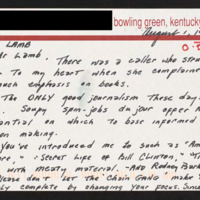 bowling green, kentucky
August 1, 19
LAMB
Mr Lamb. There was a caller who stru
To my heart when she complaine
uch emphasis on books.
The ONLY good journalism these day
. Soupy spm. jobs on your upper
antial on which to base inform
en making.
you've introduced me to such as "Am
ere," "Secret Life of Bill CLINTON,"
with meaty material. AND Rodney Bar
lease don't let the Chain GANG make
ly complete by changing your focus. Since